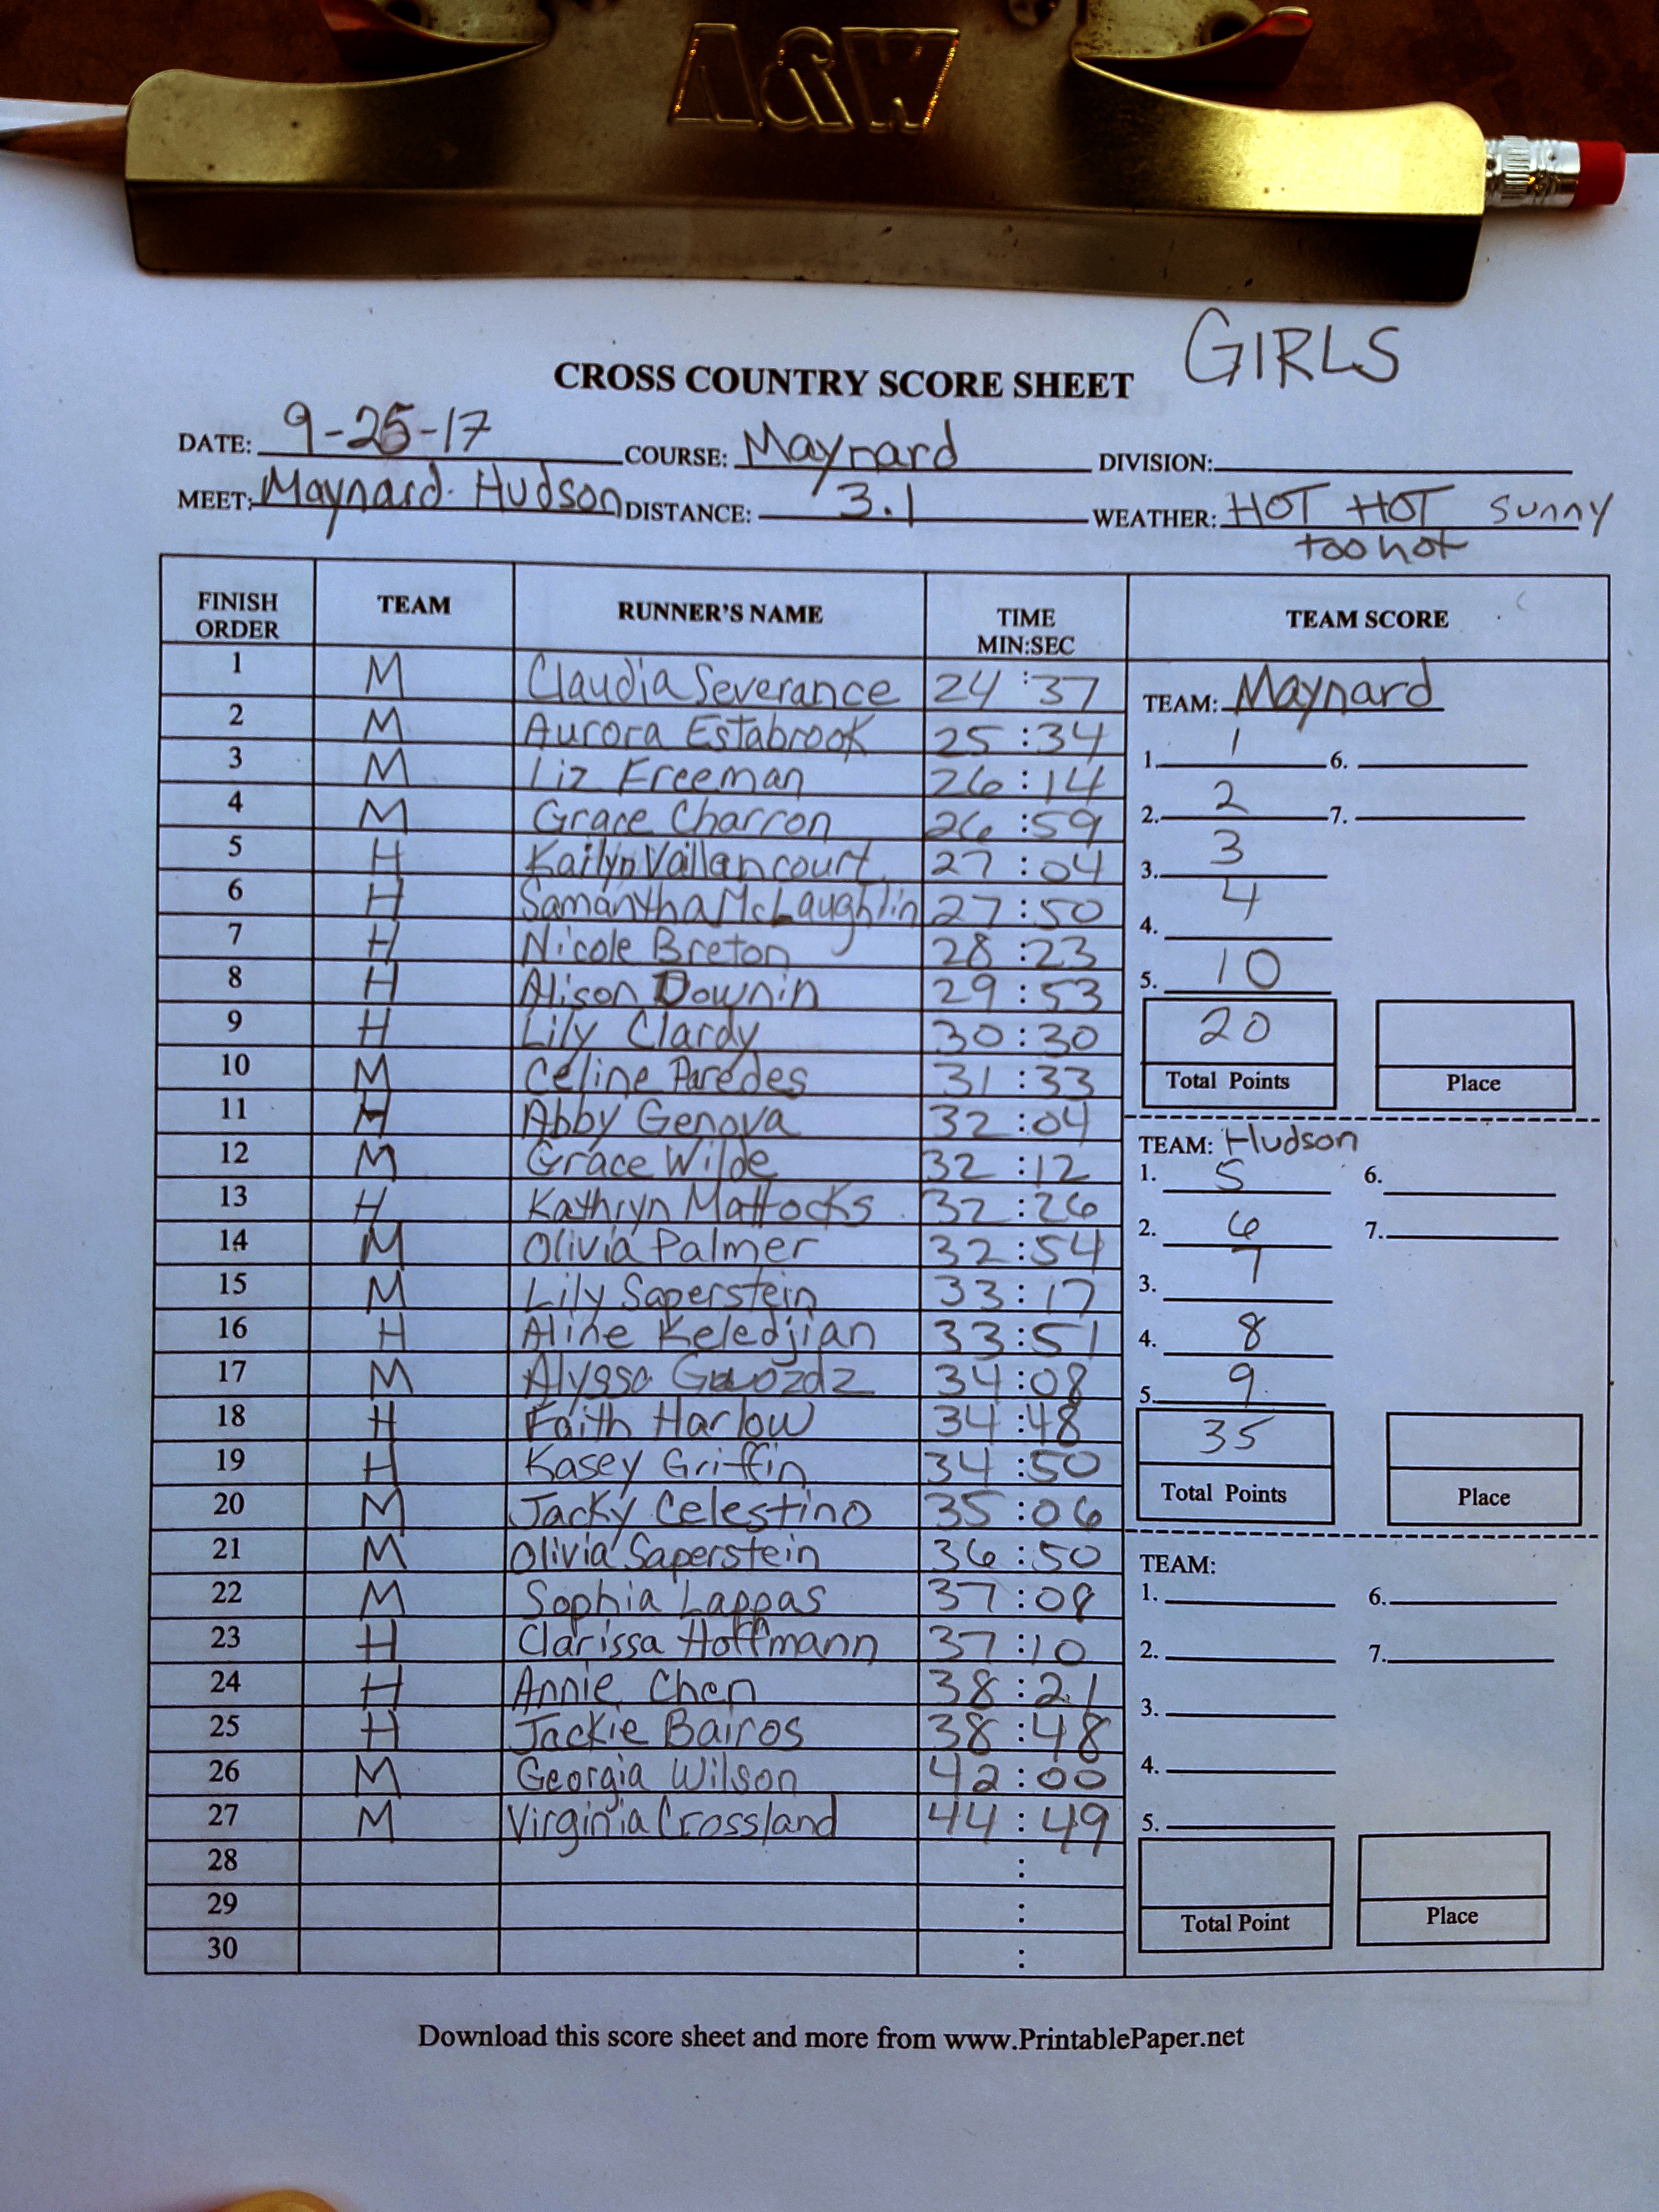 A&W
GIRLS
CROSS COUNTRY SCORE SHEET
DATE: 9-25-17 COURSE: Maynard DIVISION:
MEET: Maynard-Hudson DISTANCE: 3.1 WEATHER: HOT HOT sunny
too hot
FINISH ORDER TEAM RUNNER'S NAME TIME MIN:SEC TEAM SCORE
1 M Claudia Severance 24:37
2 M Aurora Estabrook 25:34
3 M Liz Freeman 26:14
4 M Grace Charron 26:59
5 H Kailyn Vaillancourt 27:04
6 H Samantha McLaughlin 27:50
7 H Nicole Breton 28:23
8 H Alison Downin 29:53
9 H Lily Clardy 30:30
10 M Celine Paredes 31:33
11 H Abby Genova 32:04
12 M Grace Wilde 32:12
13 H Kathryn Mattocks 32:26
14 M Olivia Palmer 32:54
15 M Lily Saperstein 33:17
16 H Aline Keledjian 33:51
17 M Alyssa Gwozdz 34:08
18 H Faith Harlow 34:48
19 H Kasey Griffin 34:50
20 M Jacky Celestino 35:06
21 M Olivia Saperstein 36:50
22 M Sophia Lappas 37:08
23 H Clarissa Hoffmann 37:10
24 H Annie Chen 38:21
25 H Jackie Bairos 38:48
26 M Georgia Wilson 42:00
27 M Virginia Crossland 44:49
28 :
29 :
30 :
TEAM: Maynard
1. 1 6.
2. 2 7.
3. 3
4. 4
5. 10
20
Total Points Place
TEAM: Hudson
1. 5 6.
2. 6 7.
3. 7
4. 8
5. 9
35
Total Points Place
TEAM:
1. 6.
2. 7.
3.
4.
5.
Total Point Place
Download this score sheet and more from www.PrintablePaper.net